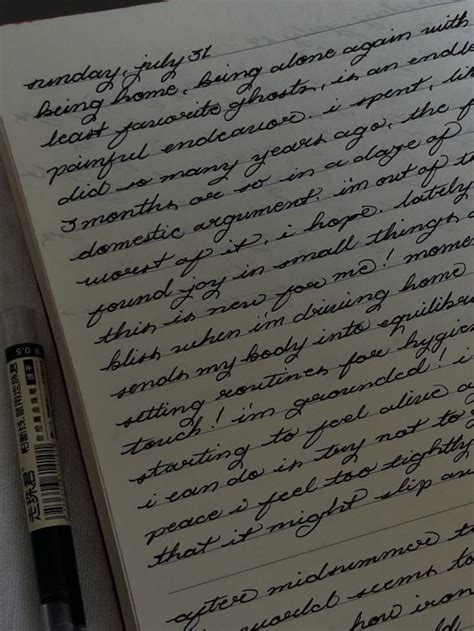 sunday, july 31
being home, being alone again with
least favorite ghosts, is an endle
painful endeavor. i spent, li
did so many years ago, the
3 months or so in a daze of
domestic argument. i'm out of t
worst of it, i hope. lately
found joy in small things
this is new for me! mome
bliss when i'm driving home
sends my body into equilibri
setting routines for hygie
touch! i'm grounded! i
starting to feel alive a
i can do is try not to g
peace i feel too tightly
that it might slip aw
after midsummer t
world seems to
how iron
0.5
走珠君